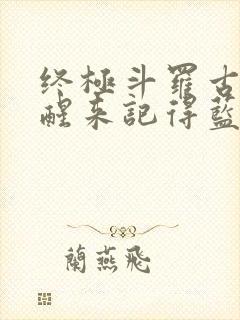 终極斗羅古
醒来記得藍
蘭燕飛